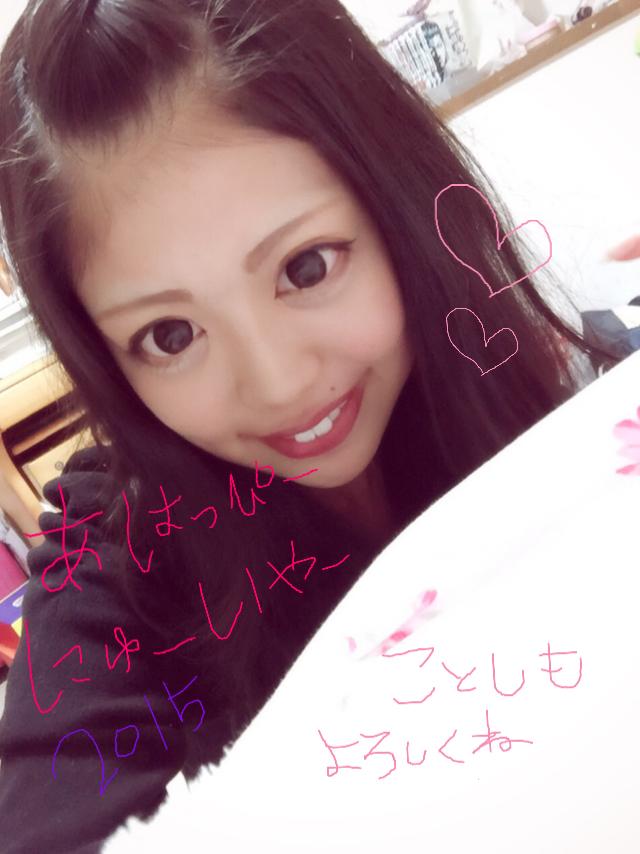 あはっぴー
にゅーいやー
2015
ことしも
よろしくね